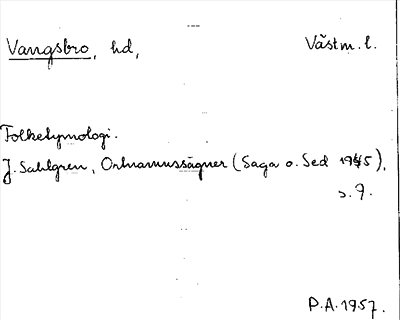 Vangsbro, hd, Västm. l.
Folketymologi.
J. Sahlgren, Ortnamnssägner (Saga o. Sed 1945),
s. 7.
P.A. 1957.